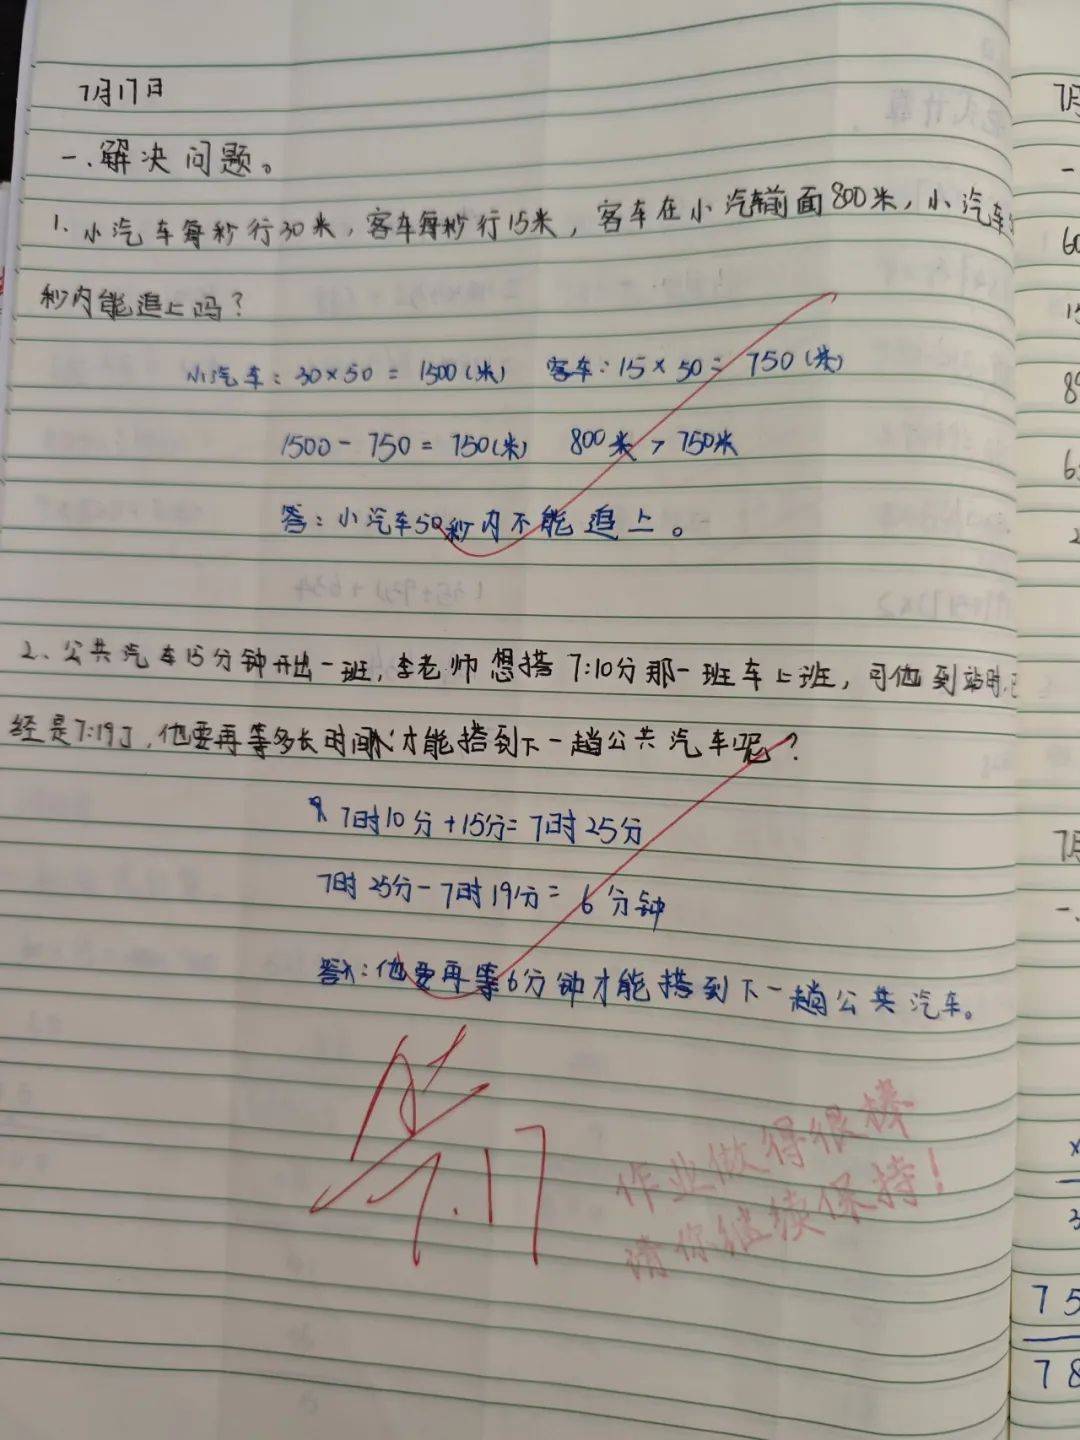 7月17日
一、解决问题。
1、小汽车每秒行30米，客车每秒行15米，客车在小汽车前面800米，小汽车
秒内能追上吗？
小汽车：30×50=1500(米) 客车：15×50=750(米)
1500-750=750(米) 800米>750米
答：小汽车50秒内不能追上。
2、公共汽车15分钟开出一班，李老师想搭7:10分那一班车上班，可他到站时，已
经是7:19了，他要再等多长时间才能搭到下一趟公共汽车呢？
7时10分+15分=7时25分
7时25分-7时19分=6分钟
答：他要再等6分钟才能搭到下一趟公共汽车。
7.17
作业做得很棒
请你继续保持！
7月
一
60
15
89
7月
一、
×
3
75
78